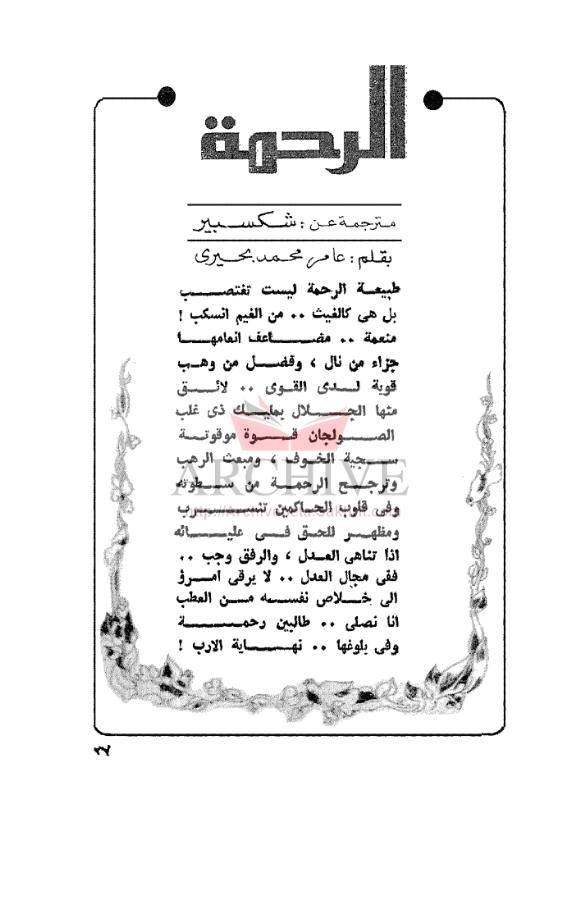 الرحمة
مترجمة عن : شكسبير
بقلم : عامر محمد بحيرى
طبيعة الرحمة ليست تغتصب
بل هى كالغيث .. من الغيم انسكب !
منعمة .. مضاعف انعامها
جزاء من نال ، وفضل من وهب
قوية لدى القوى .. لائق
منها الجلال بمليك ذى غلب
الصولجان قوة موقوتة
سجية الخوف ، ومبعث الرهب
وترجح الرحمة من سطوته
وفى قلوب الحاكمين تنسرب
ومظهر للحق فى عليائه
اذا تناهى العدل ، والرفق وجب ..
ففى مجال العدل .. لا يرقى امرؤ
الى خلاص نفسه من العطب
انا نصلى .. طالبين رحمة
وفى بلوغها .. نهاية الارب !
ARCHIVE